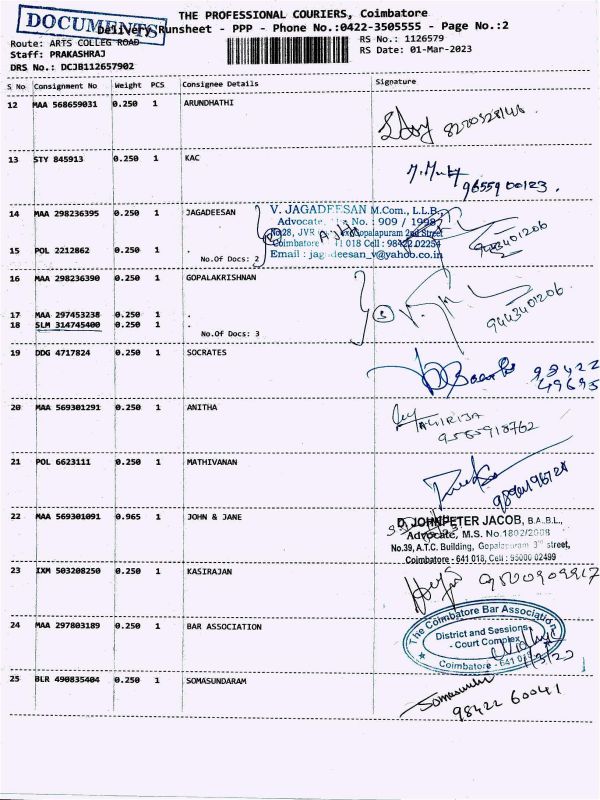 DOCUMENTS
THE PROFESSIONAL COURIERS, Coimbatore
Delivery Runsheet - PPP - Phone No.:0422-3505555 - Page No.:2
Route: ARTS COLLEG ROAD
RS No.: 1126579
Staff: PRAKASHRAJ
RS Date: 01-Mar-2023
DRS No.: DCJB112657902
S No Consignment No Weight PCS Consignee Details Signature
12 MAA 568659031 0.250 1 ARUNDHATHI
13 STY 845913 0.250 1 KAC
9655900123.
14 MAA 298236395 0.250 1 JAGADEESAN
V. JAGADEESAN M.Com., L.L.B.,
Advocate, No.: 909 / 1998
No.28, JVR Gopalapuram 2nd Street
Coimbatore 641 018 Cell : 98422 02254
Email : jagadeesan_v@yahoo.co.in
9443401206
15 POL 2212862 0.250 1 .
No.Of Docs: 2
16 MAA 298236390 0.250 1 GOPALAKRISHNAN
17 MAA 297453238 0.250 1 .
18 SLM 314745400 0.250 1 .
No.Of Docs: 3
3
9443401206
19 DDG 4717824 0.250 1 SOCRATES
98422
49695
20 MAA 569301291 0.250 1 ANITHA
9565918762
21 POL 6623111 0.250 1 MATHIVANAN
22 MAA 569301091 0.965 1 JOHN & JANE
D. JOHNPETER JACOB, B.A.,B.L.,
Advocate, M.S. No.1802/2008
No.39, A.T.C. Building, Gopalapuram 3rd street,
Coimbatore - 641 018, Cell : 95000 02499
23 IXM 503208250 0.250 1 KASIRAJAN
9500909917
24 MAA 297803189 0.250 1 BAR ASSOCIATION
The Coimbatore Bar Association
District and Sessions
- Court Complex
Coimbatore - 641 018
25 BLR 490835404 0.250 1 SOMASUNDARAM
98422 60041